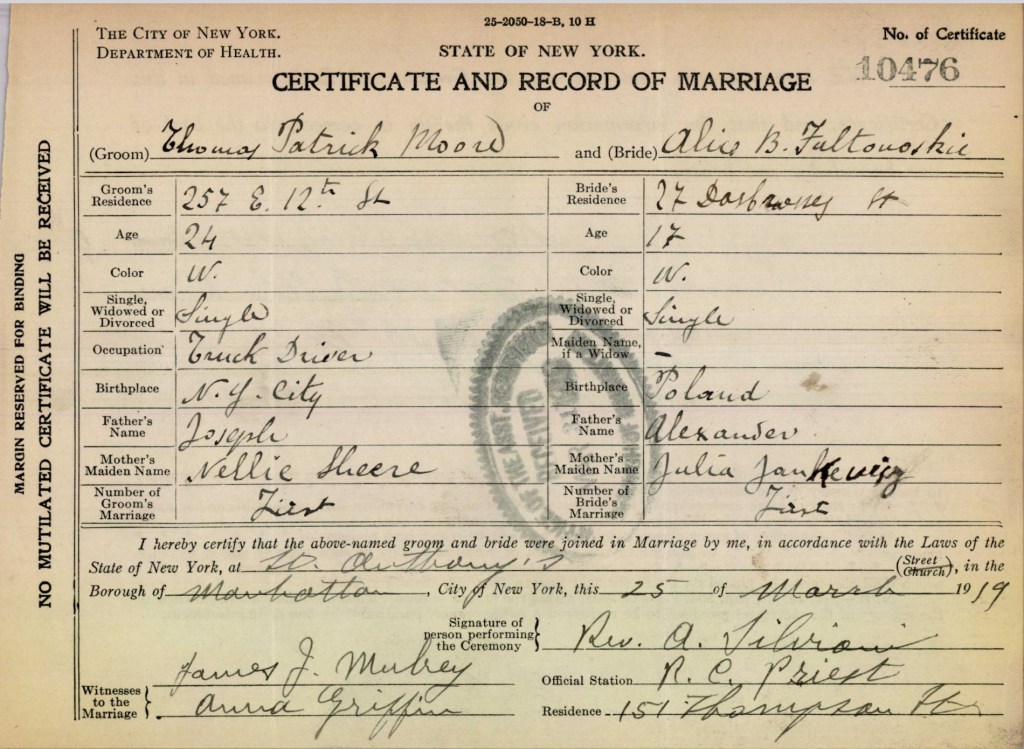 25-2050-18-B, 10 H
THE CITY OF NEW YORK.
DEPARTMENT OF HEALTH.
STATE OF NEW YORK.
No. of Certificate
10476
CERTIFICATE AND RECORD OF MARRIAGE
OF
(Groom) Thomas Patrick Moore and (Bride) Alice B. Fultonoskie
Groom's Residence 257 E. 12th St Bride's Residence 27 St
Age 24 Age 17
Color W. Color W.
Single, Widowed or Divorced Single Single, Widowed or Divorced Single
Occupation Truck Driver Maiden Name, if a Widow –
Birthplace N.Y. City Birthplace Poland
Father's Name Joseph Father's Name Alexander
Mother's Maiden Name Nellie Sheere Mother's Maiden Name Julia
Number of Groom's Marriage First Number of Bride's Marriage First
I hereby certify that the above-named groom and bride were joined in Marriage by me, in accordance with the Laws of the
State of New York, at St. Anthony's (Street Church), in the
Borough of Manhattan, City of New York, this 25 of March 1919
Signature of person performing the Ceremony Rev. A. Silvioni
James J. Mulrey
Official Station R. C. Priest
Witnesses to the Marriage Anna Griffin
Residence 151 Thompson St
MARGIN RESERVED FOR BINDING
NO MUTILATED CERTIFICATE WILL BE RECEIVED